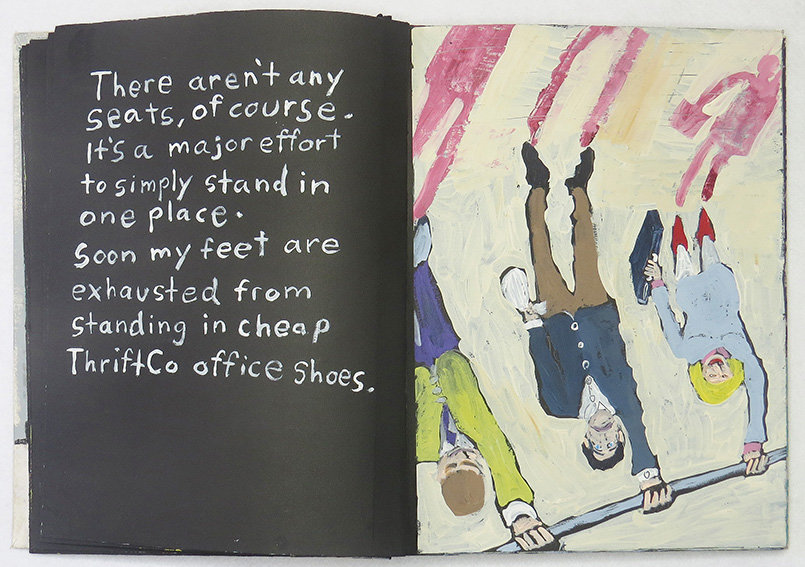 There aren't any
seats, of course.
It's a major effort
to simply stand in
one place.
Soon my feet are
exhausted from
standing in cheap
ThriftCo office shoes.